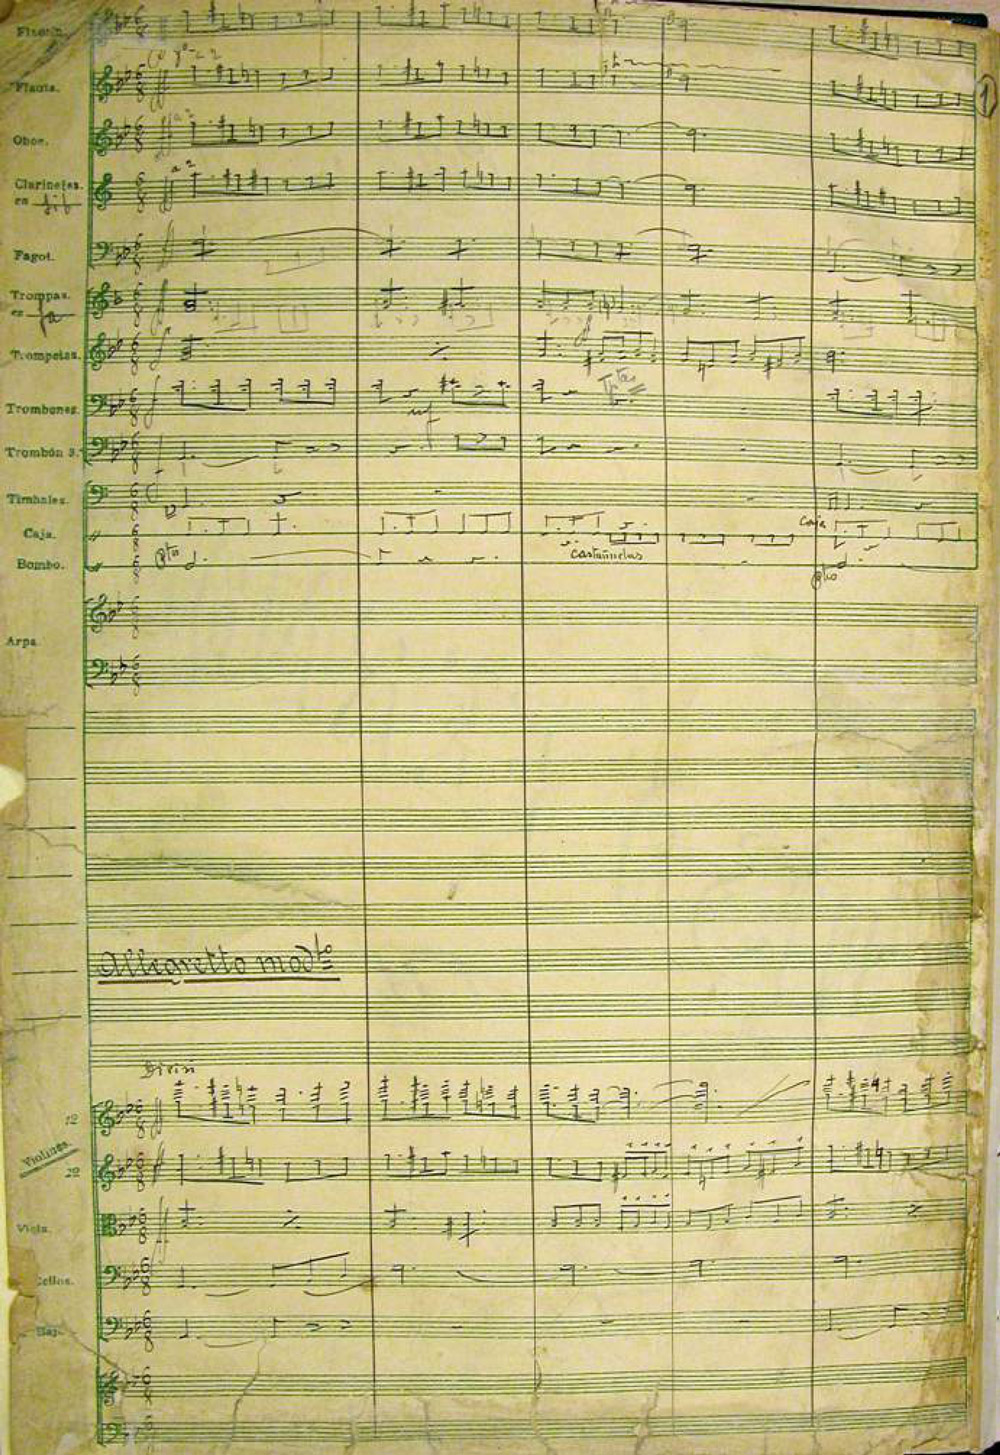 Flautin.
Flauta.
1
Oboe.
a 2
Clarinetes.
en sib
Fagot.
Trompas.
en fa
Trompetas.
Trombones.
mf
Trombón 3.º
Timbales.
Caja.
Caja
Bombo.
Pto
Castañuelas
Pto
Arpa.
Allegretto modto
Divisi
Violines.
Viola.
Cellos.